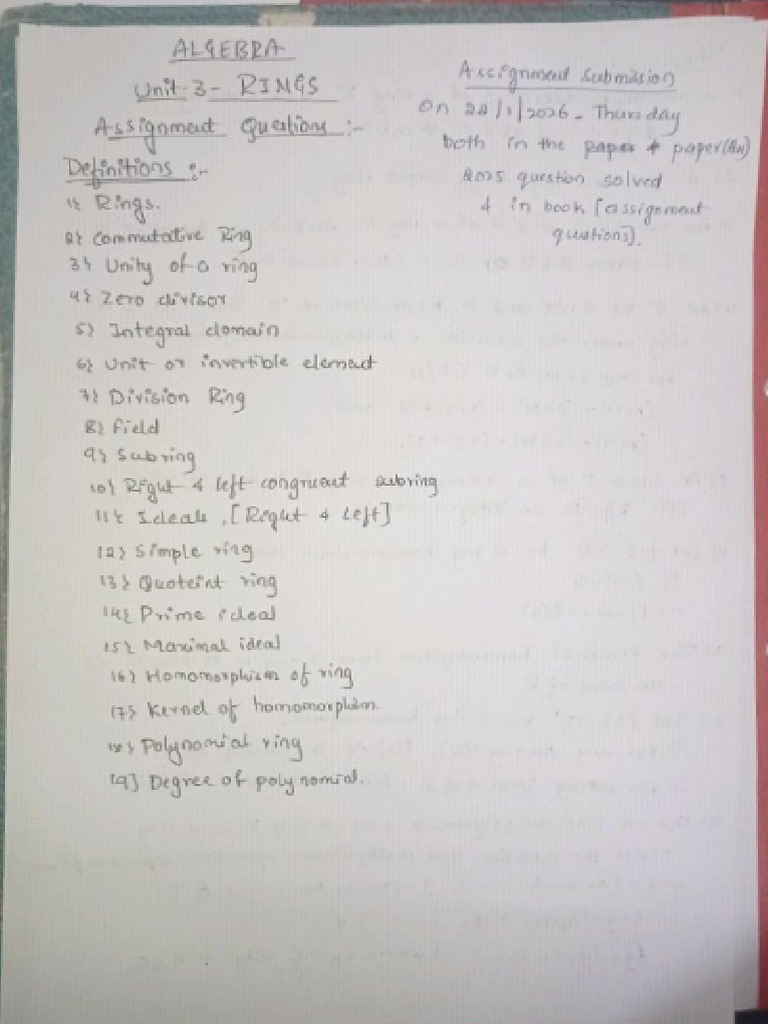 ALGEBRA
Unit-3- RINGS
Assignment Questions :-
Definitions :-
1} Rings.
2} Commutative Ring
3} Unity of a ring
4} Zero divisor
5} Integral domain
6} Unit or invertible element
7} Division Ring
8} field
9} Subring
10} Right & left congruent subring
11} Ideals, [Right & Left]
12} Simple ring
13} Quoteint ring
14} Prime ideal
15} Maximal ideal
16} Homomorphism of ring
17} Kernel of homomorphism.
18} Polynomial ring
19] Degree of polynomial.
Assignment Submission
On /1/2026 - Thursday
both in the paper & paper
2025 question solved
& in book [assignment
questions].